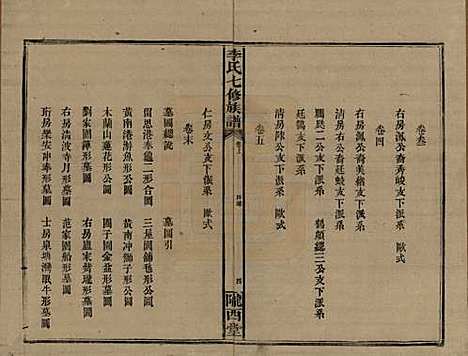 卷叁
右房派公裔秀峻支下派系 歐式
卷四
右房派公裔美緒支下派系
清房右公裔廷蛟支下派系
鵬民二公支下派系 鶴顛總三公支下派系
廷鶴支下派系
清房陣公支下派系 歐式
卷五
李氏七修族譜
目錄
四
隴西堂
仁房文公支下派系 歐式
卷末
墓圖總說 墓圖引
留思港奉二形合圖 三星圖鋪毡形合圖
黃南港游魚形墓圖 黃南冲獅子形公圖
大山蓮花形公圖 園子園金盆形墓圖
劉家園蘭草形墓圖 范家園船形墓圖
右房清波寺月形墓圖 右房盧家黃龍形墓圖
珩房樂安冲奉形墓圖 士房泉塘灣眠牛形墓圖